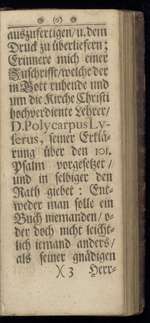 (o)
auszufertigen/ u. dem
Druck zu überliefern;
Erinnere mich einer
Zuschrifft/ welche der
in Gott ruhende und
um die Kirche Christi
hochverdiente Lehrer/
D. Polycarpus Ly-
serus, seiner Erklä-
rung über den 101.
Psalm vorgesetzet/
und in selbiger den
Rath giebet: Ent-
weder man solle ein
Buch niemanden/ o-
der doch nicht leicht-
lich jemand anders/
als seiner gnädigen
)( 3 Herr-